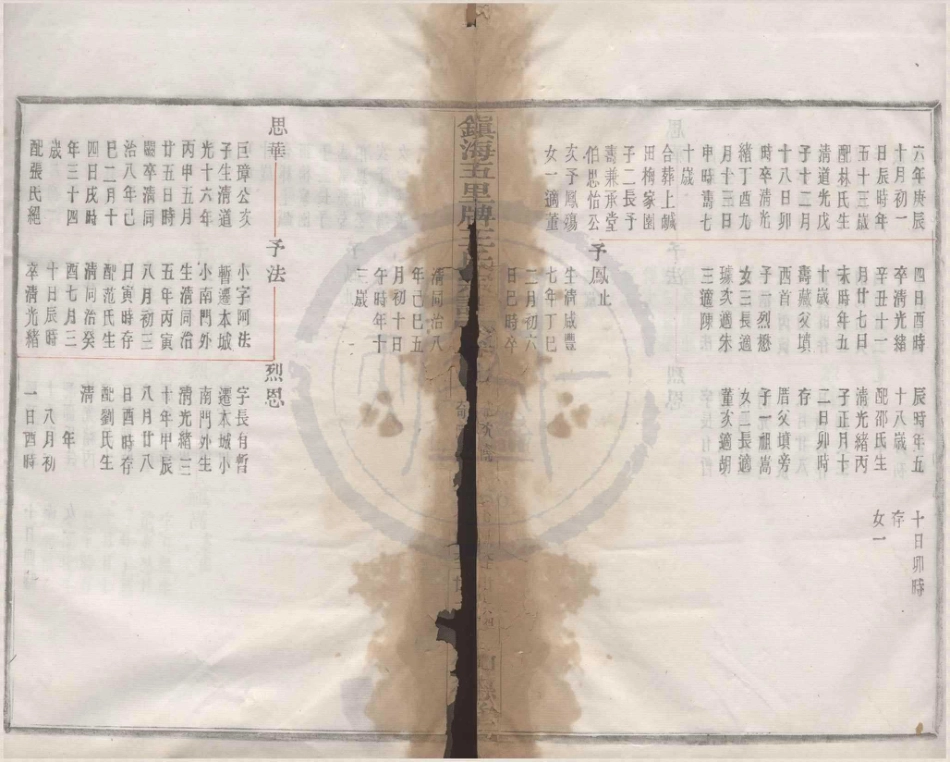 六年庚辰
十月初一
日辰時年
五十三歲
配林氏生
清道光戊
子十二月
十八日卯
時卒清光
緒丁酉九
月十三日
申時壽七
十歲
合葬上鹹
田椅家園
子二長予
壽兼承堂
伯思怡公
次予鳳殤
女一適董
四日酉時
卒清光緒
辛丑十一
月廿七日
未時年五
十歲
壽藏父墳
西首
子一烈懋
女三長適
璩次適朱
三適陳
予鳳止
生清咸豐
七年丁巳
二月初六
日巳時卒
辰時年五
十八歲
配邵氏生
清光緒丙
子正月十
二日卯時
存
厝父墳旁
子一祖嵩
女二長適
董次適胡
十日卯時
存
女一
鎮海五里牌王氏
清同治八
年己巳五
月初十日
午時年十
三歲
思華
巨璋公次
子生清道
光十六年
丙申五月
廿五日時
闕卒清同
治八年己
巳二月十
四日戌時
年三十四
歲
配張氏繼
予法
小字阿法
暫遷本城
小南門外
生清同治
五年丙寅
八月初三
日寅時存
配范氏生
清同治癸
酉七月三
十日辰時
卒清光緒
烈恩
字長有暫
遷本城小
南門外生
清光緒三
十年甲辰
八月廿八
日酉時存
配劉氏生
清
年
八月初
一日酉時